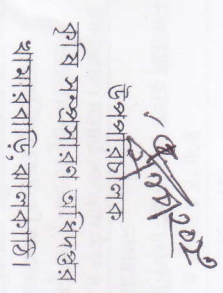 উপপরিচালক
কৃষি সম্প্রসারণ অধিদপ্তর
খামারবাড়ি, ঝালকাঠি।